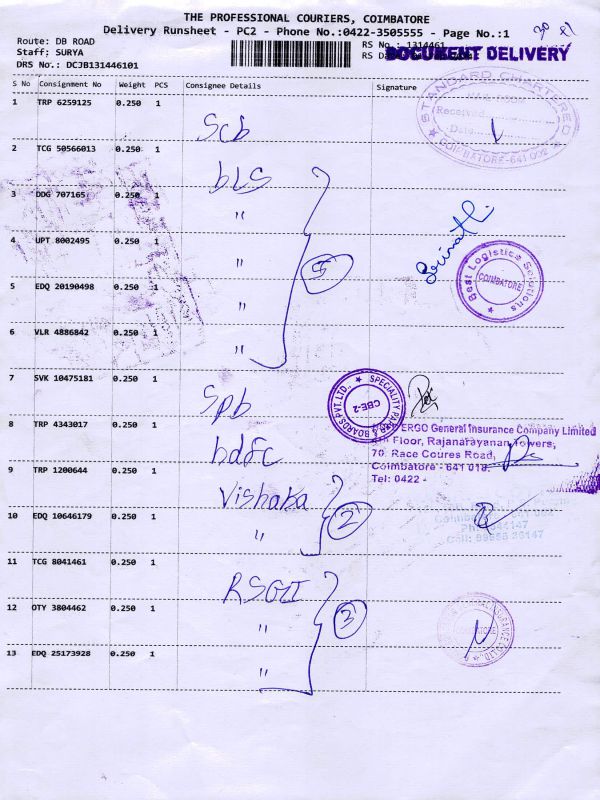 THE PROFESSIONAL COURIERS, COIMBATORE
Delivery Runsheet - PC2 - Phone No.:0422-3505555 - Page No.:1
Route: DB ROAD
RS No.: 1314461
Staff; SURYA
DOCUMENT DELIVERY
DRS No.: DCJB131446101
S No Consignment No Weight PCS Consignee Details Signature
1 TRP 6259125 0.250 1 Scb
STANDARD CHARTERED
Received
Date
COIMBATORE-641 002
2 TCG 50566013 0.250 1 bLS
3 DDG 707165 0.250 1 "
4 UPT 8002495 0.250 1 "
5
Srinath
Best Logistics Solutions
COIMBATORE
5 EDQ 20190498 0.250 1 "
6 VLR 4886842 0.250 1 "
7 SVK 10475181 0.250 1 Spb
SPECIALITY PAPER & BOARDS PVT.LTD.
CBE-2
8 TRP 4343017 0.250 1 hdfc
ERGO General Insurance Company Limited
Floor, Rajanarayanan Towers,
70. Race Coures Road,
Coimbatore - 641 018.
Tel: 0422 -
9 TRP 1200644 0.250 1 Vishaka
10 EDQ 10646179 0.250 1 "
2
11 TCG 8041461 0.250 1 RSGI
12 OTY 3804462 0.250 1 "
3
13 EDQ 25173928 0.250 1 "